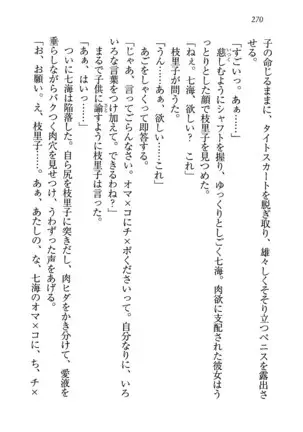 270
子の命じるままに、タイトスカートを脱ぎ取り、雄々しくそそり立つペニスを露出さ
せる。
「すごいっ。あぁ……」
慈しむようにシャフトを握り、ゆっくりとしごく七海。肉欲に支配された彼女はう
っとりとした顔で枝里子を見つめた。
「ねぇ。七海、欲しい？　これ」
枝里子が問うた。
「うん……あぁ、欲しい……これ」
あごをしゃくって即答する。
「じゃあ、言ってごらんなさい。オマ×コにチ×ポくださいって。自分なりに、いろ
いろな言葉をつけ加えて。できるわね？」
まるで子供に諭すように枝里子は言った。
「あぁ、はいっ……」
ついに七海は陥落した。自ら尻を枝里子に突きだし、肉ヒダをかき分けて、愛液を
垂らしながらパクつく肉穴を見せつけ、うわずった声をあげる。
「お、お願い。え、枝里子……。あぁ、あたしの、な、七海のオマ×コに、ち、チ×